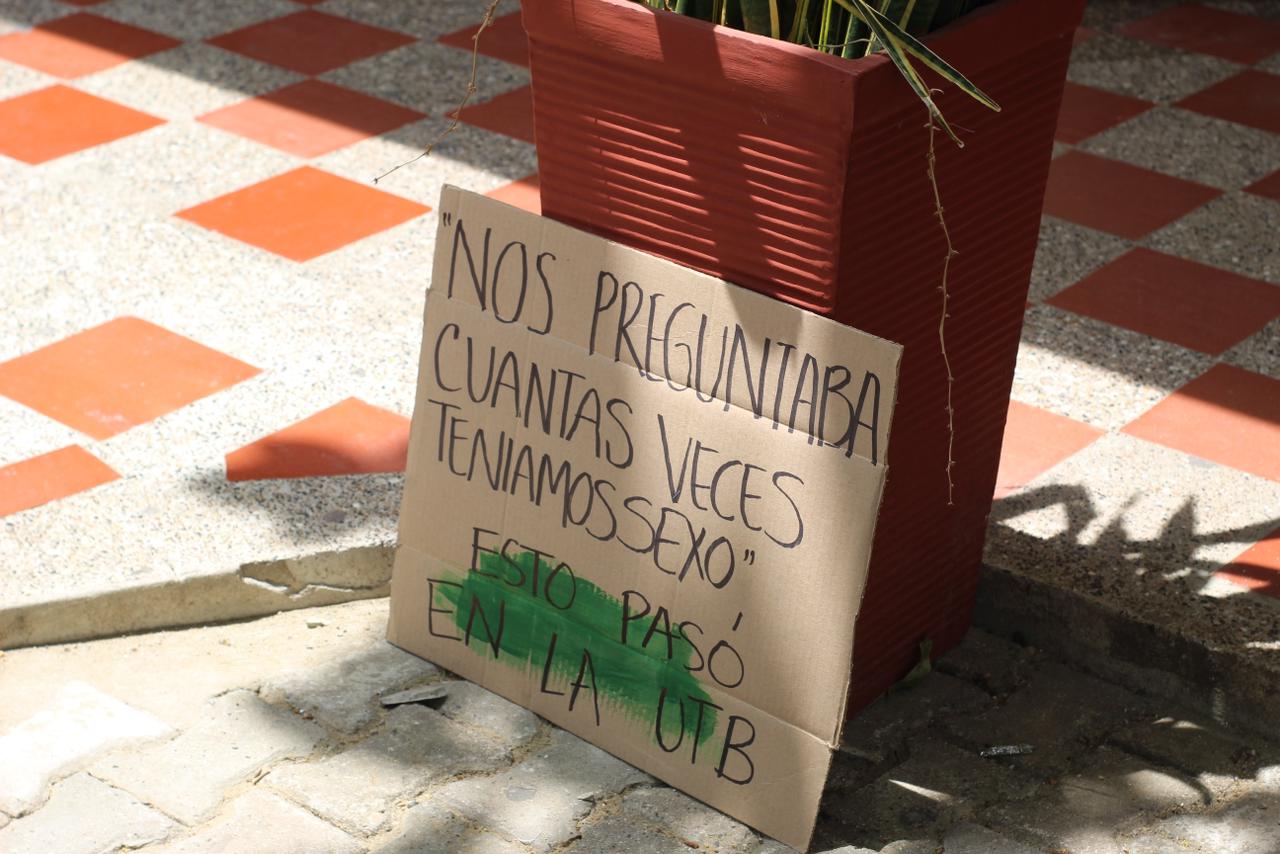 "NOS PREGUNTABA
CUANTAS VECES
TENIAMOS SEXO"
ESTO PASÓ
EN LA UTB